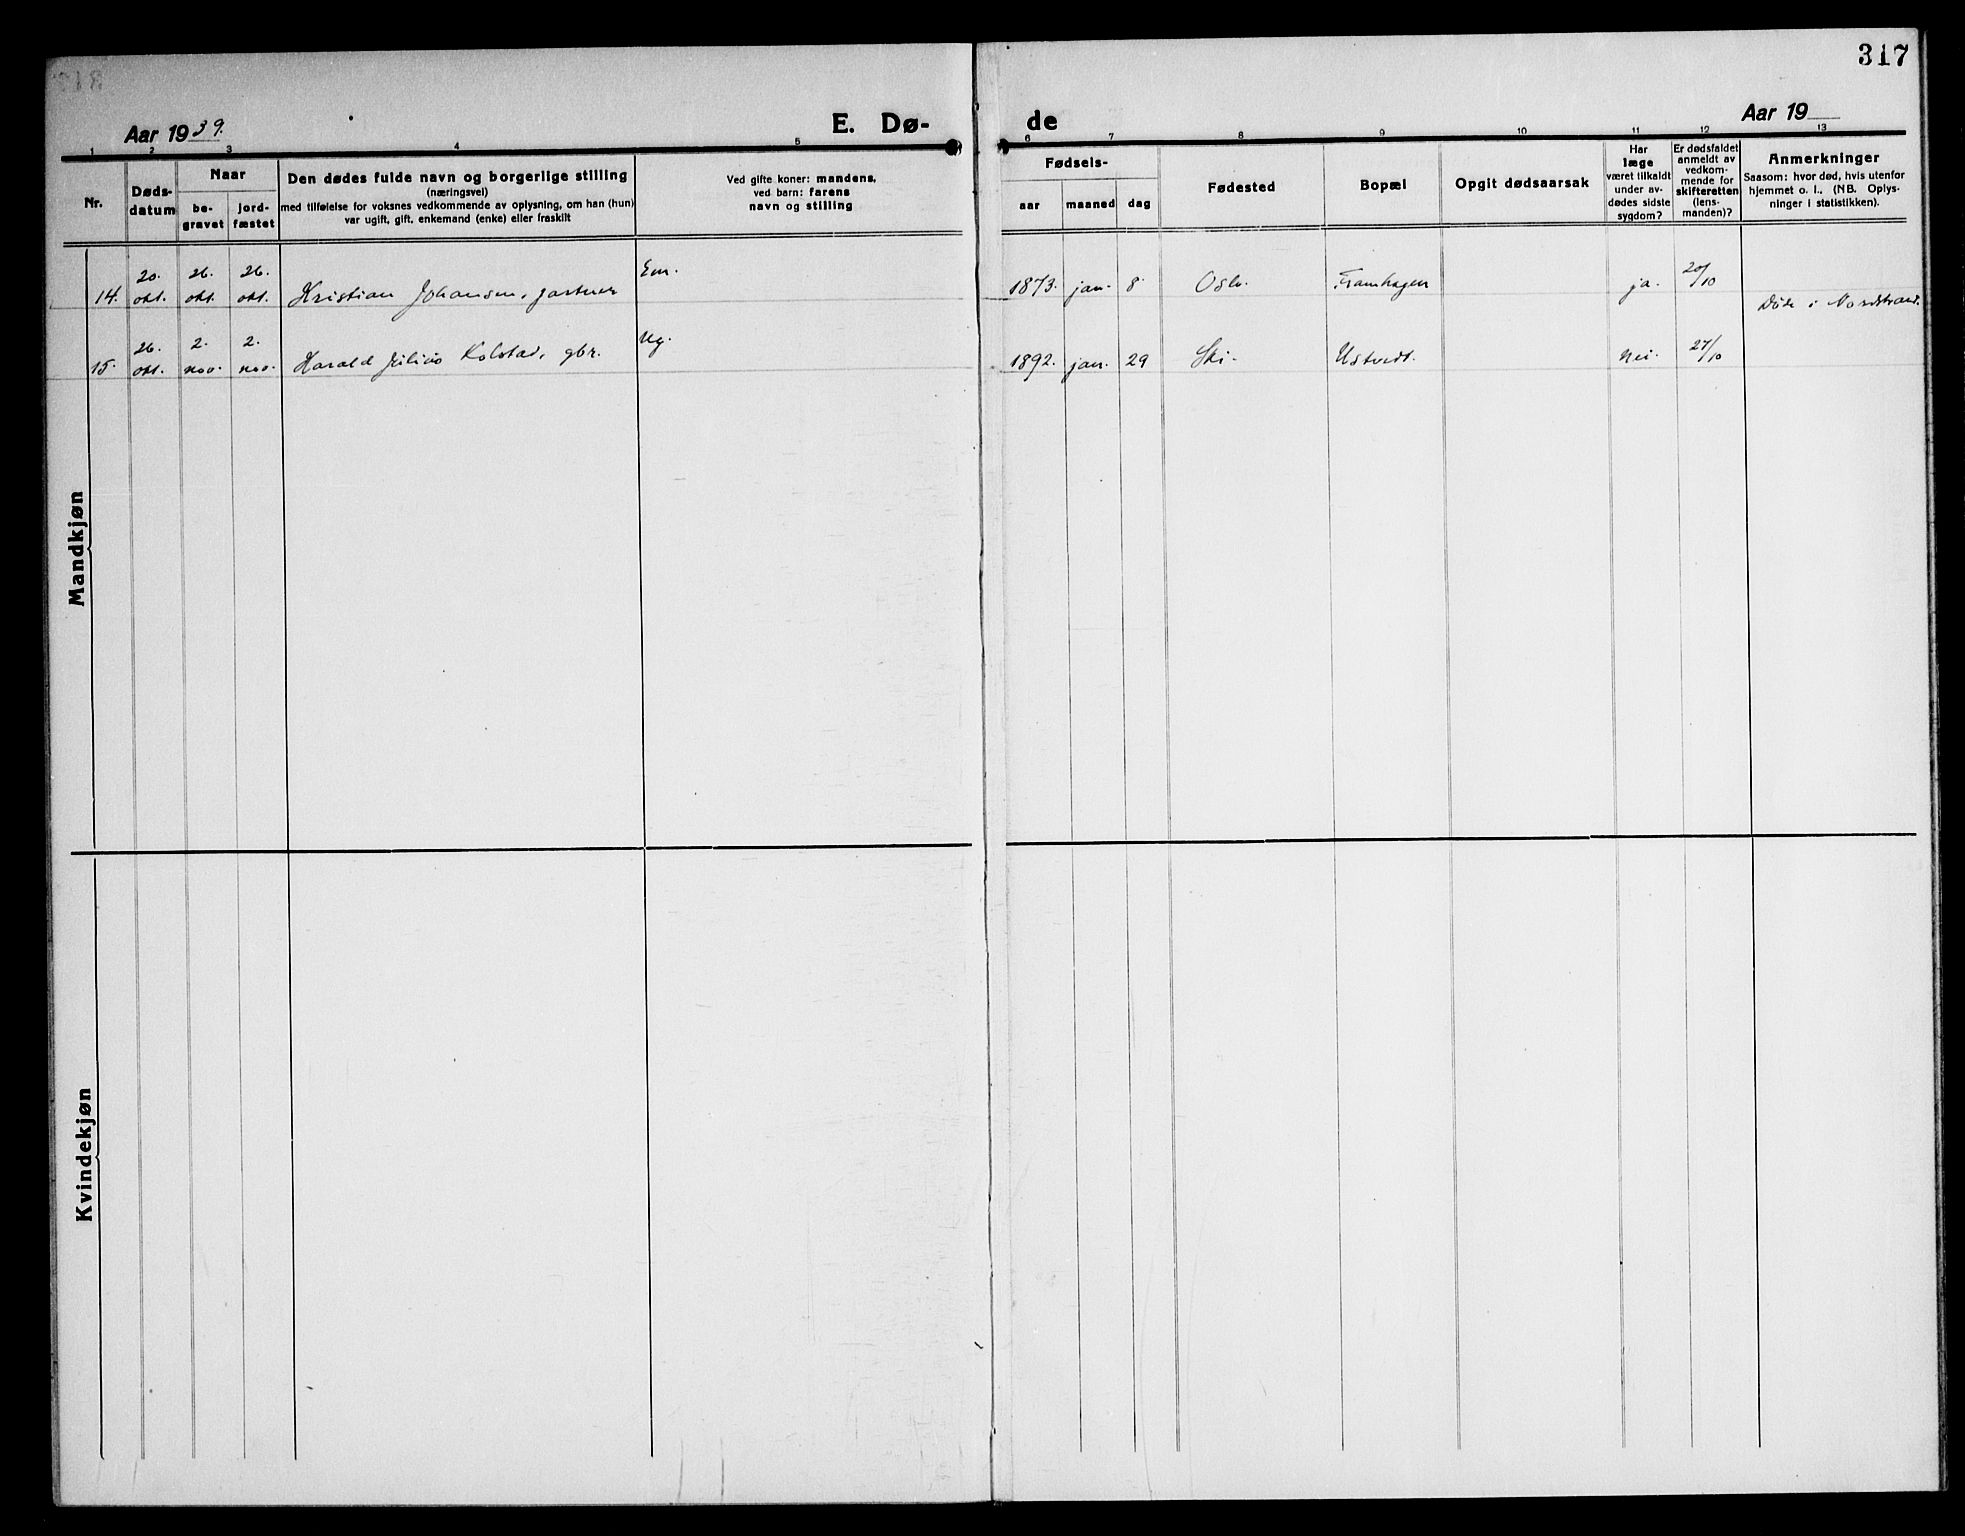 317
Aar 1939.
E. Dø-
de
Aar 19
1 2 3 4 5 6 7 8 9 10 11 12 13
Nr.
Døds-
datum
Naar
be-
gravet
jord-
fæstet
Den dødes fulde navn og borgerlige stilling
(næringsvei)
med tilføielse for voksnes vedkommende av oplysning, om han (hun)
var ugift, gift, enkemand (enke) eller fraskilt
Ved gifte koner: mandens,
ved barn: farens
navn og stilling
Fødsels-
aar
maaned
dag
Fødested
Bopæl
Opgit dødsaarsak
Har
læge
været tilkaldt
under av-
dødes sidste
sygdom?
Er dødsfaldet
anmeldt av
vedkom-
mende for
skifteretten
(lens-
manden)?
Anmerkninger
Saasom: hvor død, hvis utenfor
hjemmet o. l., (NB. Oplys-
ninger i statistikken).
Mandkjøn
14. 20. okt. 26. okt. 26. okt. Kristian Johansen, gartner Em. 1873. jan. 8. Oslo. Framhagen ja. 20/10 Døde i Nordstrand.
15. 26. okt. 2. nov. 2. nov. Harald Julius Kolstad, gbr. Ug. 1892. jan. 29 Ski. Ustvedt. Nei. 27/10
Kvindekjøn